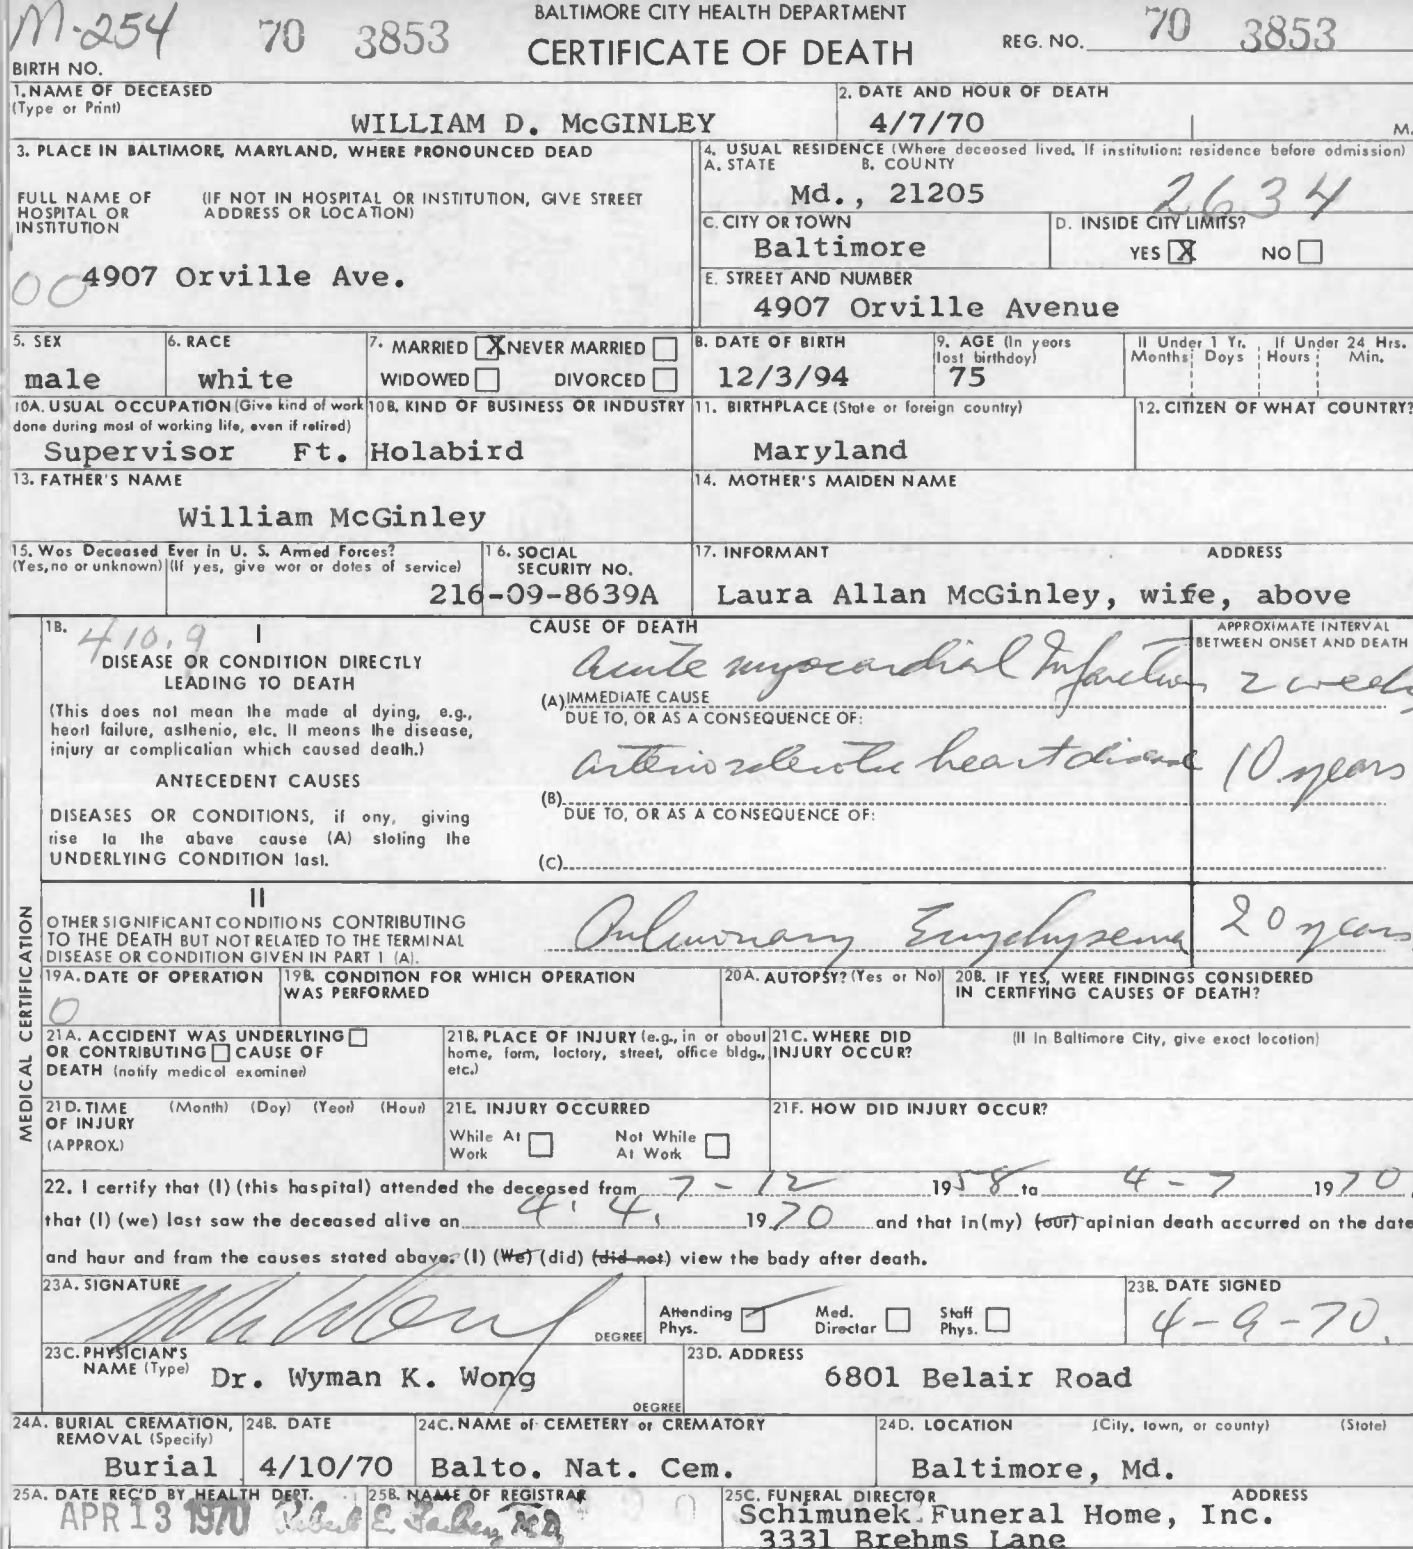 M-254 70 3853 BALTIMORE CITY HEALTH DEPARTMENT
CERTIFICATE OF DEATH REG. NO. 70 3853
BIRTH NO.
1. NAME OF DECEASED
(Type or Print)
WILLIAM D. McGINLEY
2. DATE AND HOUR OF DEATH
4/7/70 M.
3. PLACE IN BALTIMORE, MARYLAND, WHERE PRONOUNCED DEAD
FULL NAME OF HOSPITAL OR INSTITUTION
(IF NOT IN HOSPITAL OR INSTITUTION, GIVE STREET ADDRESS OR LOCATION)
00 4907 Orville Ave.
4. USUAL RESIDENCE (Where deceased lived. If institution: residence before admission)
A. STATE B. COUNTY
Md., 21205 2634
C. CITY OR TOWN
Baltimore
D. INSIDE CITY LIMITS?
YES X NO
E. STREET AND NUMBER
4907 Orville Avenue
5. SEX
male
6. RACE
white
7. MARRIED X NEVER MARRIED
WIDOWED DIVORCED
8. DATE OF BIRTH
12/3/94
9. AGE (In years last birthday)
75
If Under 1 Yr. If Under 24 Hrs.
Months Days Hours Min.
10A. USUAL OCCUPATION (Give kind of work done during most of working life, even if retired)
Supervisor
10B. KIND OF BUSINESS OR INDUSTRY
Ft. Holabird
11. BIRTHPLACE (State or foreign country)
Maryland
12. CITIZEN OF WHAT COUNTRY?
13. FATHER'S NAME
William McGinley
14. MOTHER'S MAIDEN NAME
15. Was Deceased Ever in U. S. Armed Forces?
(Yes, no or unknown) (If yes, give war or dates of service)
16. SOCIAL SECURITY NO.
216-09-8639A
17. INFORMANT ADDRESS
Laura Allan McGinley, wife, above
MEDICAL CERTIFICATION
18. 410.9 I CAUSE OF DEATH
APPROXIMATE INTERVAL BETWEEN ONSET AND DEATH
DISEASE OR CONDITION DIRECTLY LEADING TO DEATH
(This does not mean the mode of dying, e.g., heart failure, asthenia, etc. It means the disease, injury or complication which caused death.)
acute myocardial Infarction 2 weeks
(A) IMMEDIATE CAUSE
DUE TO, OR AS A CONSEQUENCE OF:
ANTECEDENT CAUSES
DISEASES OR CONDITIONS, if any, giving rise to the above cause (A) stating the UNDERLYING CONDITION last.
arteriosclerotic heart disease 10 years
(B)
DUE TO, OR AS A CONSEQUENCE OF:
(C)
II
OTHER SIGNIFICANT CONDITIONS CONTRIBUTING TO THE DEATH BUT NOT RELATED TO THE TERMINAL DISEASE OR CONDITION GIVEN IN PART 1 (A).
Pulmonary Emphysema 20 years
19A. DATE OF OPERATION
0
19B. CONDITION FOR WHICH OPERATION WAS PERFORMED
20A. AUTOPSY? (Yes or No)
20B. IF YES, WERE FINDINGS CONSIDERED IN CERTIFYING CAUSES OF DEATH?
21A. ACCIDENT WAS UNDERLYING OR CONTRIBUTING CAUSE OF DEATH (notify medical examiner)
21B. PLACE OF INJURY (e.g., in or about home, farm, factory, street, office bldg., etc.)
21C. WHERE DID INJURY OCCUR?
(If In Baltimore City, give exact location)
21D. TIME OF INJURY (APPROX.)
(Month) (Day) (Year) (Hour)
21E. INJURY OCCURRED
While At Work Not While At Work
21F. HOW DID INJURY OCCUR?
22. I certify that (I) (this hospital) attended the deceased from 7-12 1958 to 4-7 1970,
that (I) (we) last saw the deceased alive on 4. 4. 1970 and that in (my) (our) opinion death occurred on the date
and hour and from the causes stated above. (I) (We) (did) (did not) view the body after death.
23A. SIGNATURE
DEGREE
Attending Phys. Med. Director Staff Phys.
23B. DATE SIGNED
4-9-70.
23C. PHYSICIAN'S NAME (Type)
Dr. Wyman K. Wong
DEGREE
23D. ADDRESS
6801 Belair Road
24A. BURIAL CREMATION, REMOVAL (Specify)
Burial
24B. DATE
4/10/70
24C. NAME of CEMETERY or CREMATORY
Balto. Nat. Cem.
24D. LOCATION (City, town, or county) (State)
Baltimore, Md.
25A. DATE REC'D BY HEALTH DEPT.
APR 13 1970
25B. NAME OF REGISTRAR
Robert E. Farber, M.D.
25C. FUNERAL DIRECTOR ADDRESS
Schimunek Funeral Home, Inc.
3331 Brehms Lane